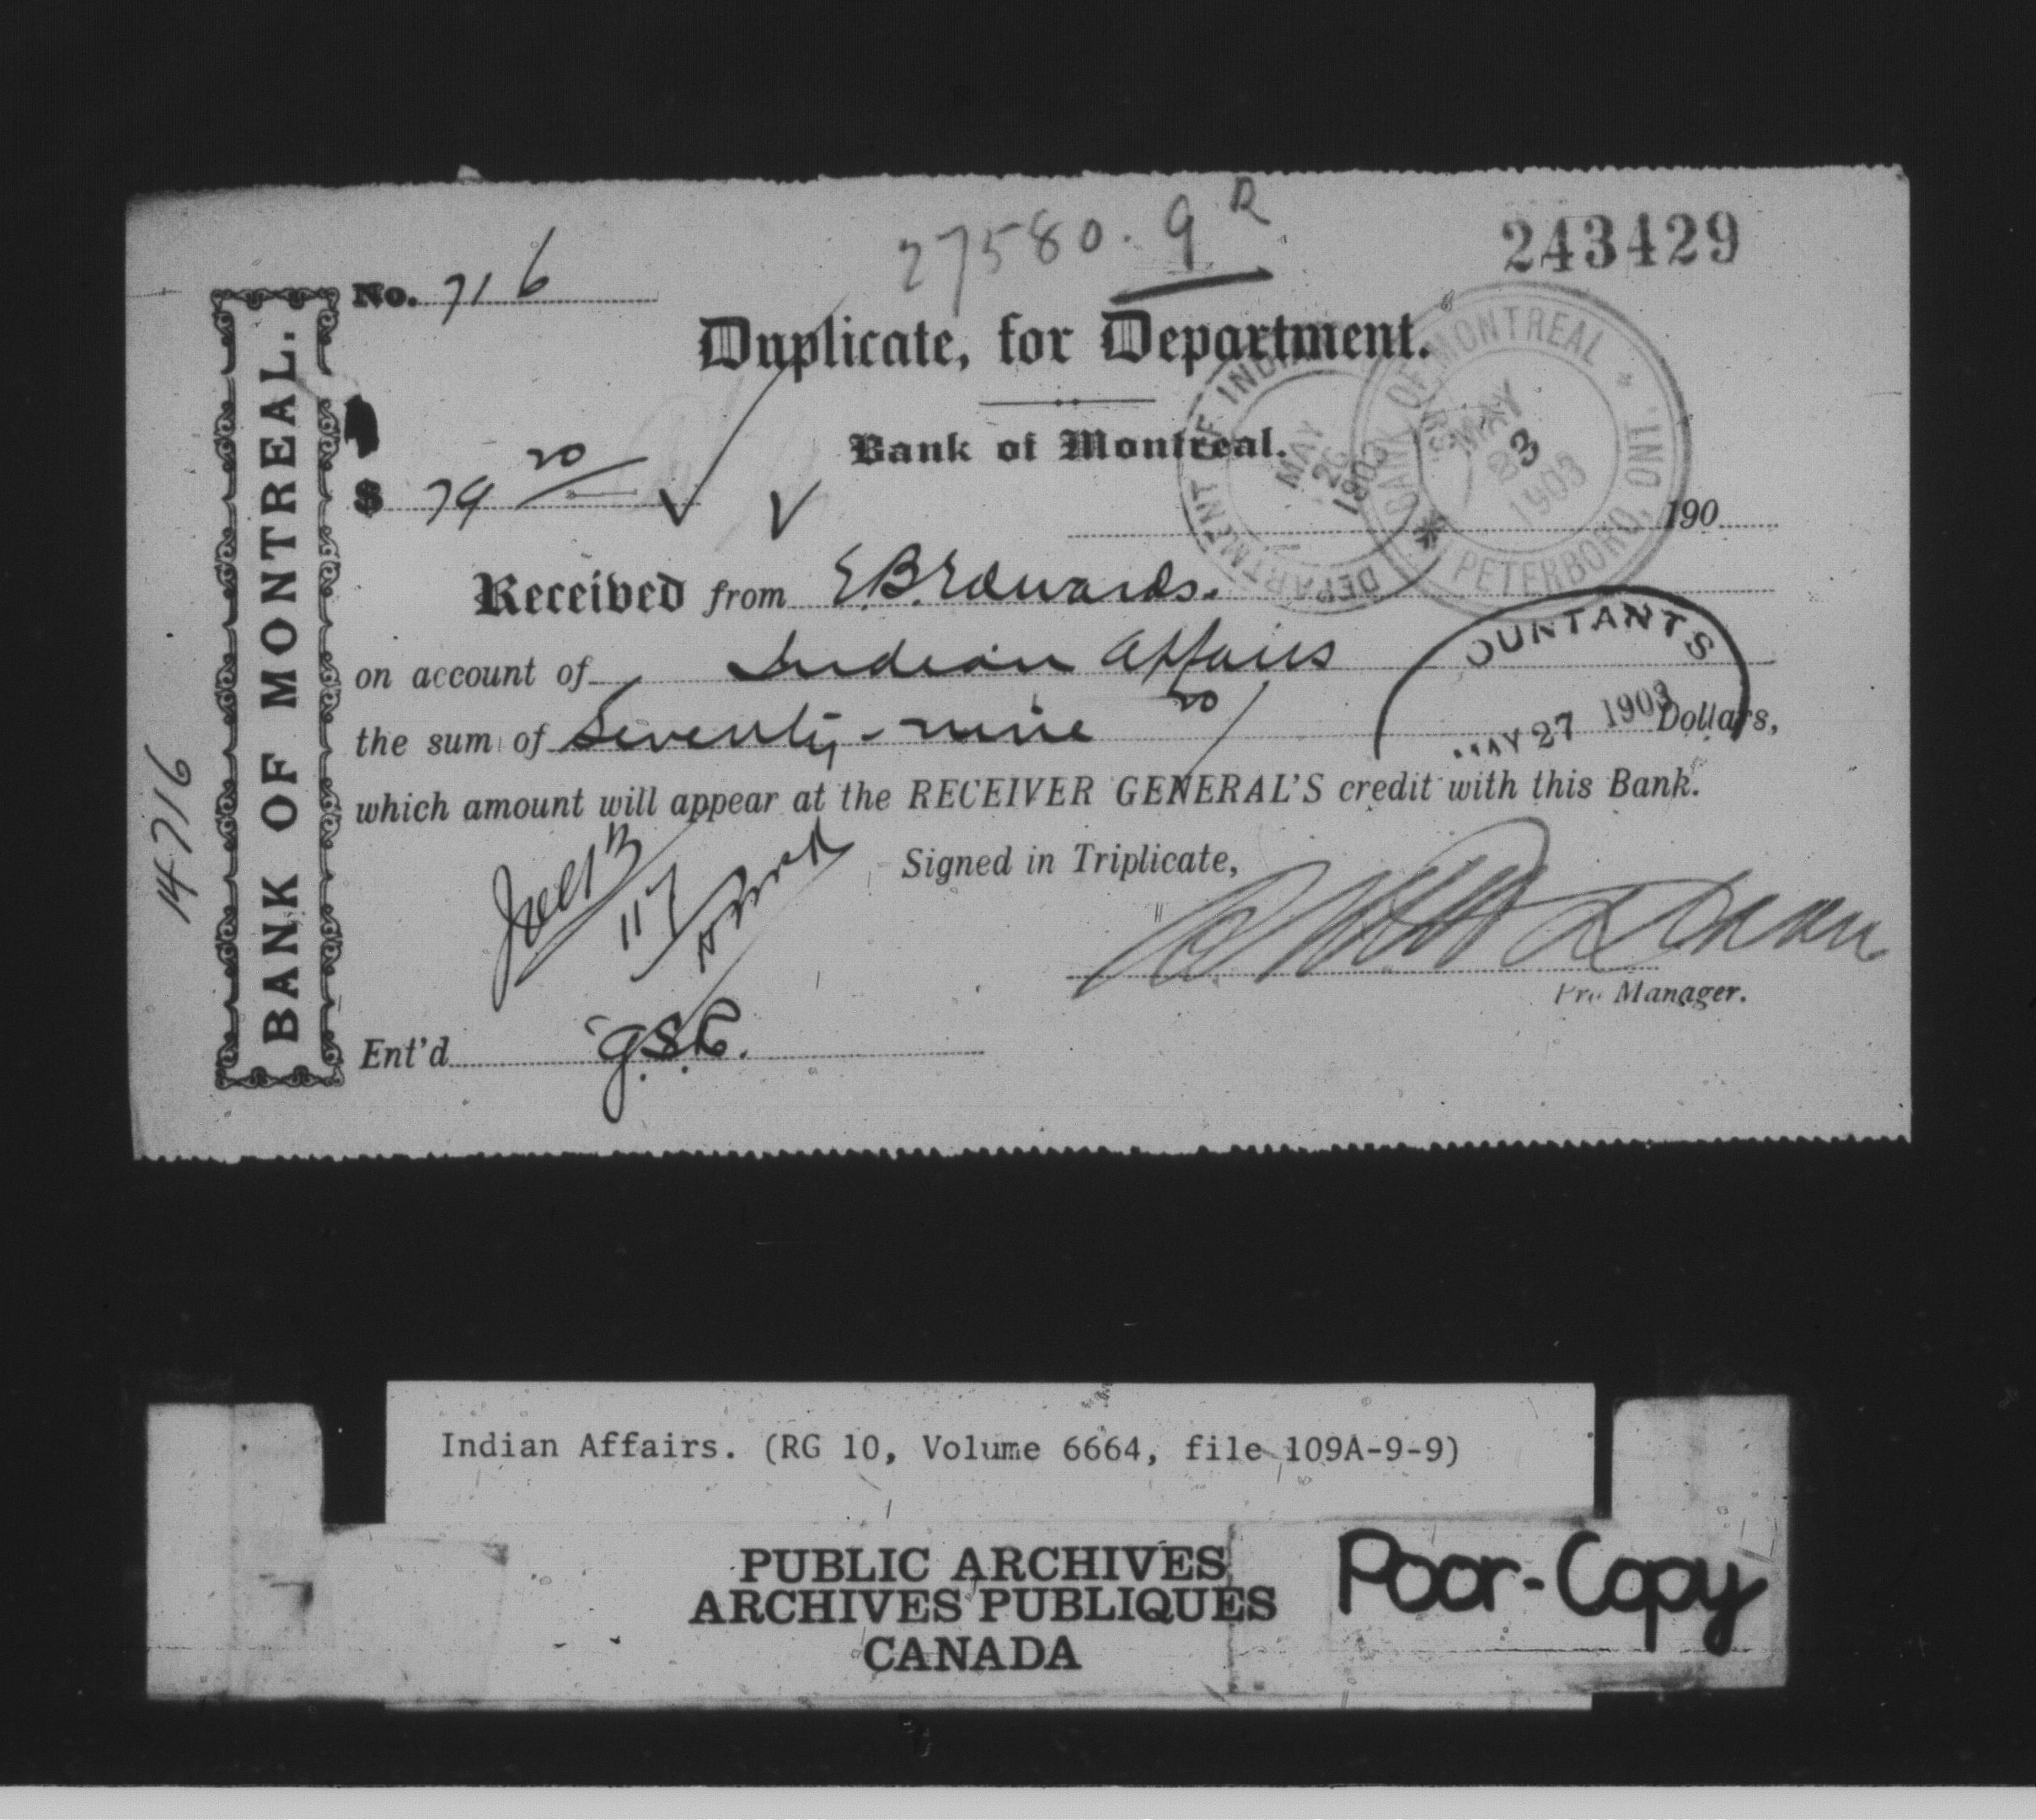 27580. 9 R
243429
No. 716
Duplicate, for Department.
BANK OF MONTREAL
PETERBORO, ONT.
MAY
23
1903
DEPARTMENT OF INDIAN
MAY
26
1903
Bank of Montreal.
$ 79 20
190
Received from E.B. Edwards.
on account of Indian Affairs
OUNTANTS
MAY 27 1903
the sum of Seventy-nine 20 Dollars,
which amount will appear at the RECEIVER GENERAL'S credit with this Bank.
Signed in Triplicate,
117
Pro Manager.
Ent'd
BANK OF MONTREAL.
14716
Indian Affairs. (RG 10, Volume 6664, file 109A-9-9)
PUBLIC ARCHIVES
ARCHIVES PUBLIQUES
CANADA
Poor-Copy